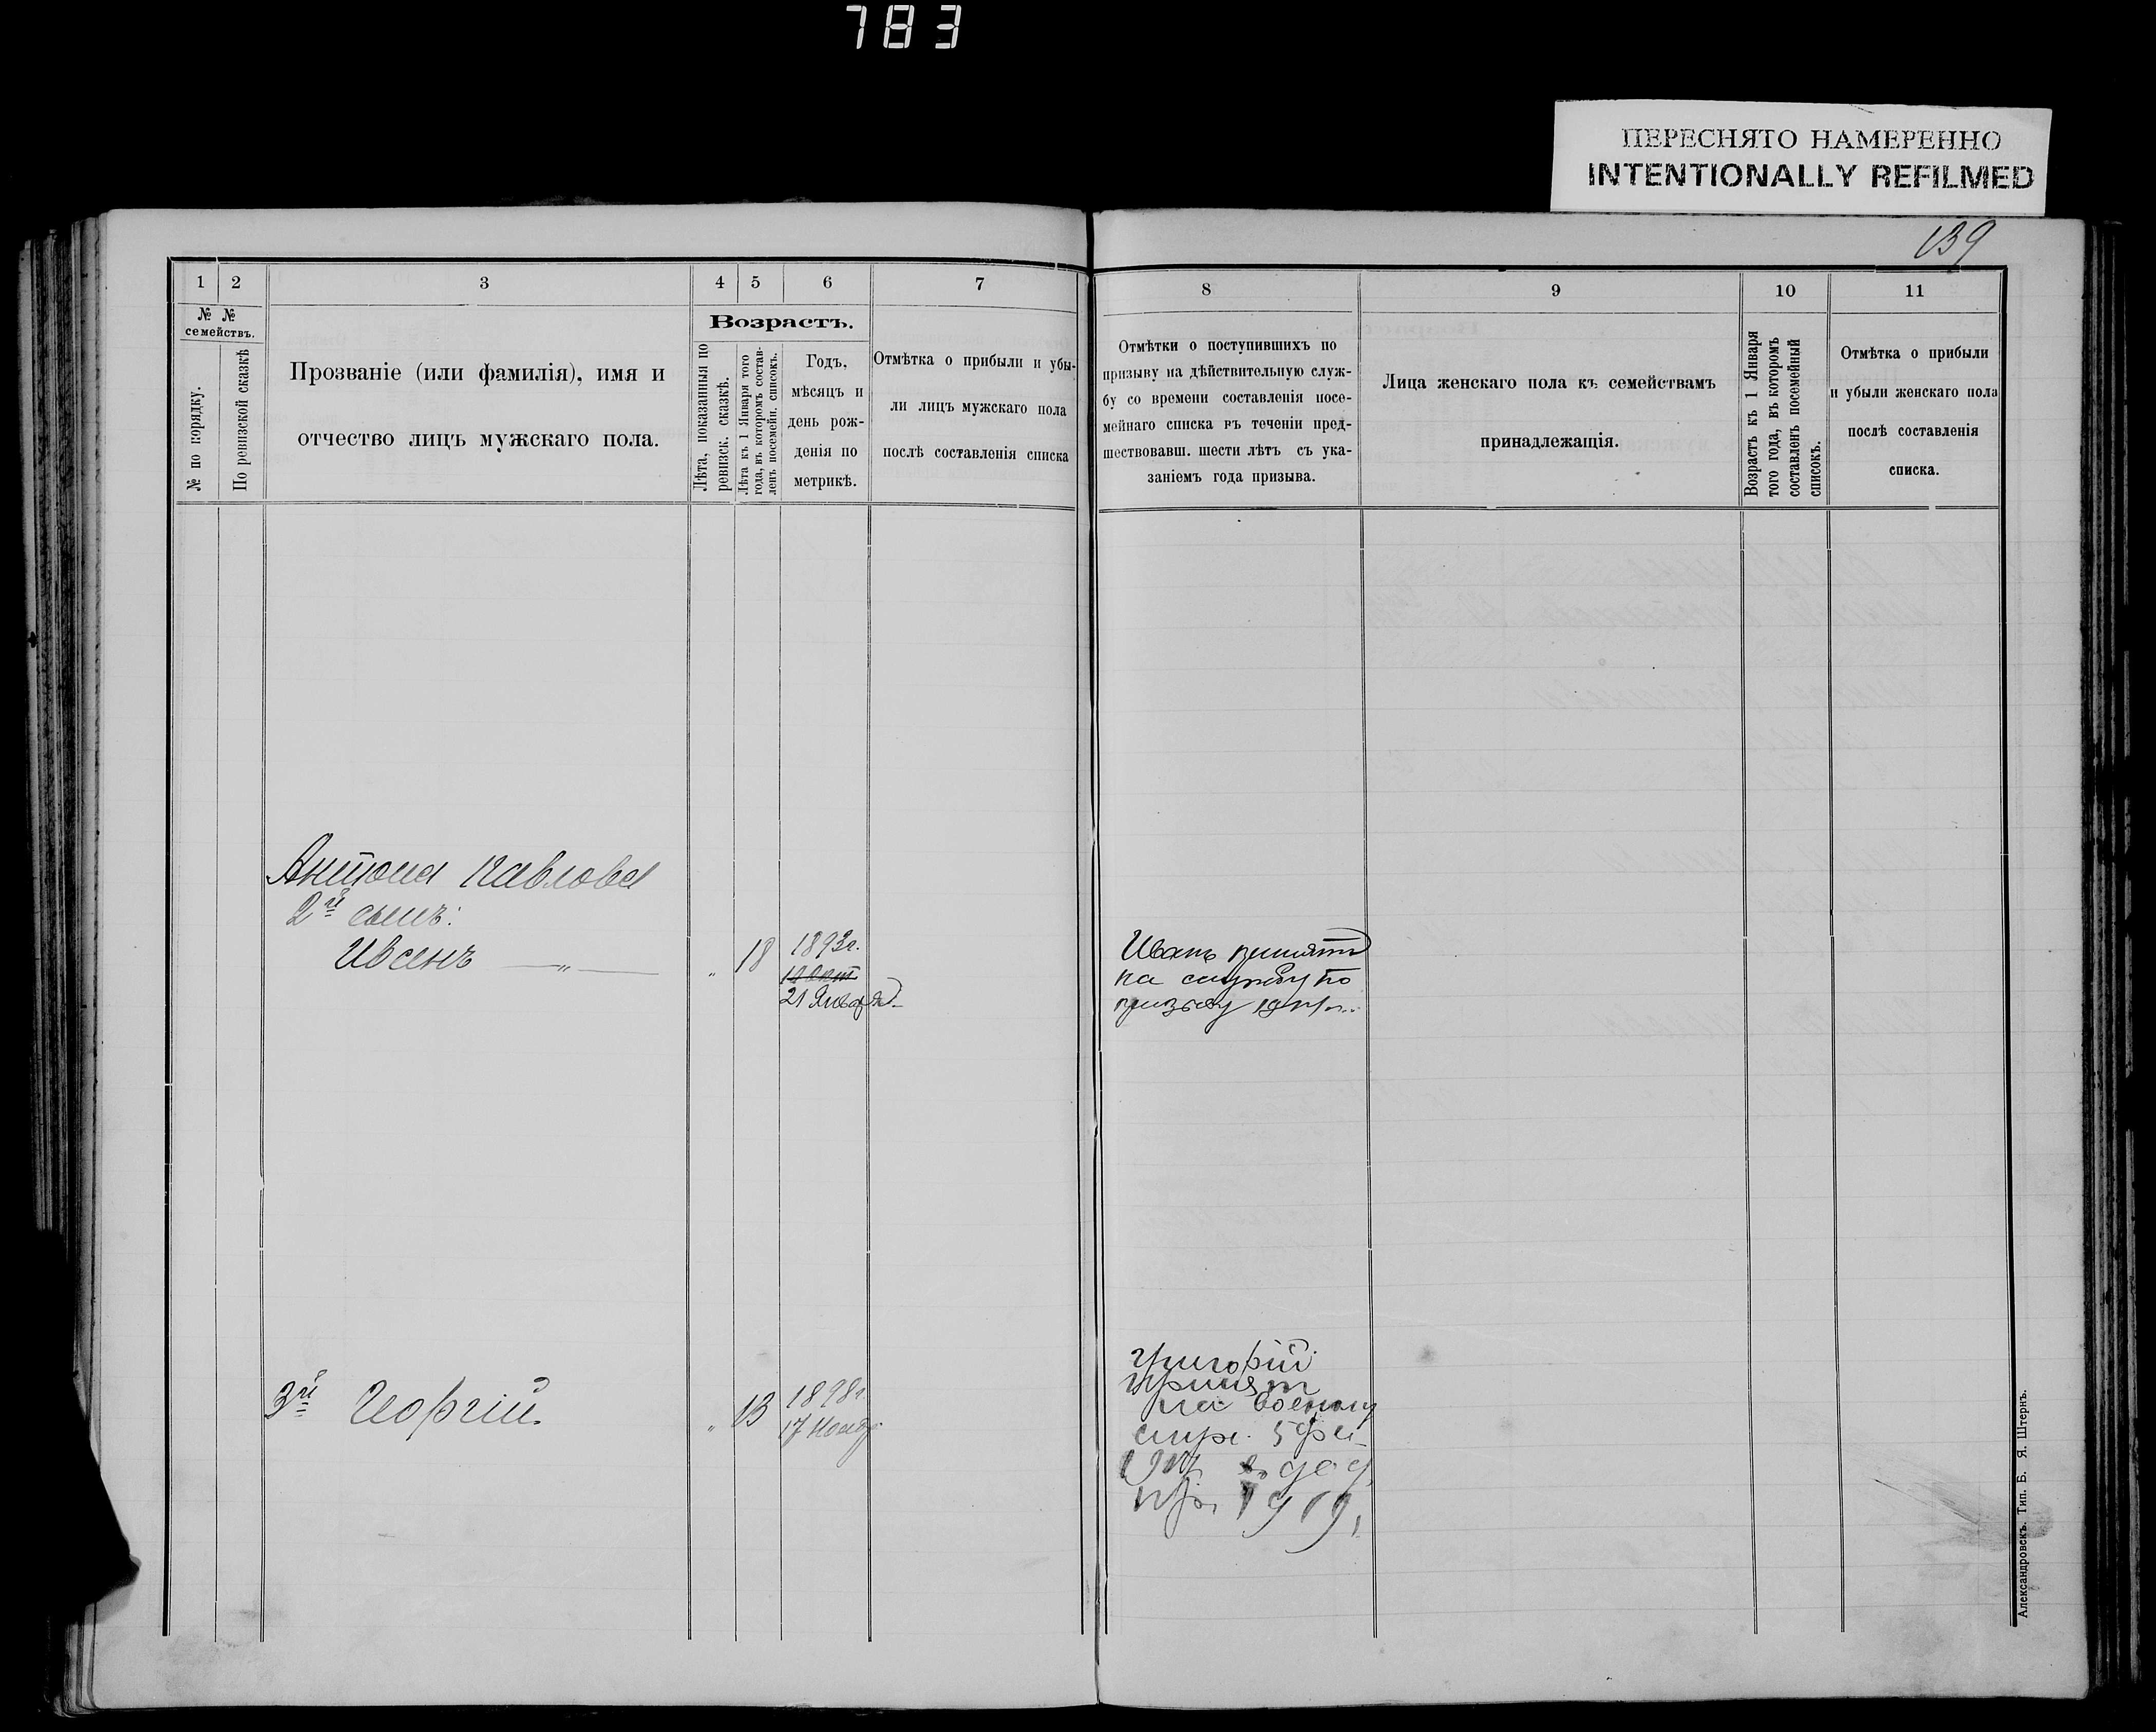 783
ПЕРЕСНЯТО НАМЕРЕННО
INTENTIONALLY REFILMED
139
1 2 3 4 5 6 7 8 9 10 11
№ №
семействъ.
№ по порядку.
По ревизской сказкѣ
Прозваніе (или фамилія), имя и
отчество лицъ мужскаго пола.
Возрастъ.
Лѣта, показанныя по
ревизск. сказкѣ.
Лѣта къ 1 Января того
года, въ которомъ состав-
ленъ посемейн. списокъ.
Годъ,
мѣсяцъ и
день рож-
денія по
метрикѣ.
Отмѣтка о прибыли и убы-
ли лицъ мужскаго пола
послѣ составленія списка
Отмѣтки о поступившихъ по
призыву на дѣйствительную служ-
бу со времени составленія посе-
мейнаго списка въ теченіи пред-
шествовавш. шести лѣтъ съ ука-
заніемъ года призыва.
Лица женскаго пола къ семействамъ
принадлежащія.
Возрастъ къ 1 Января
того года, въ которомъ
составленъ посемейный
списокъ.
Отмѣтка о прибыли
и убыли женскаго пола
послѣ составленія
списка.
Антона Павлова
2й сынъ:
Ивсенъ — „ — „ 18 1893г.
21 Января
Иванъ принятъ
на службу по
призыву
3й Георгій „ 13 1898г.
17 Ноябр.
Григорій
принят
на военную
1919
Александровскъ. Тип. Б. Я. Штернъ.